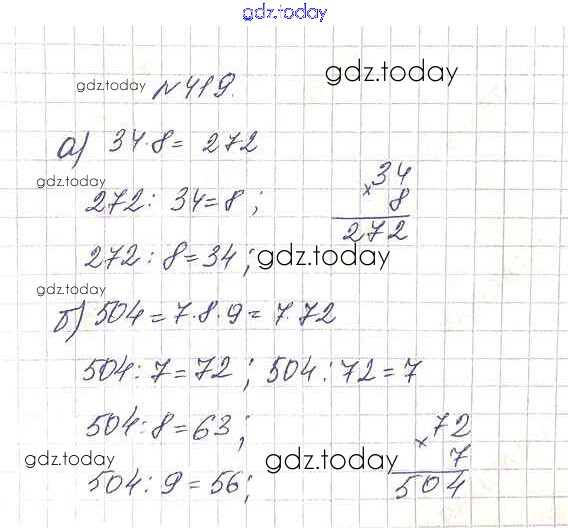 gdz.today
gdz.today №419. gdz.today
а) 34·8= 272
gdz.today
272: 34=8;
34
× 8
272
272:8=34; gdz.today
gdz.today
б) 504=7·8·9=7·72
504:7=72; 504:72=7
504:8=63;
72
× 7
504
gdz.today gdz.today
504:9=56;